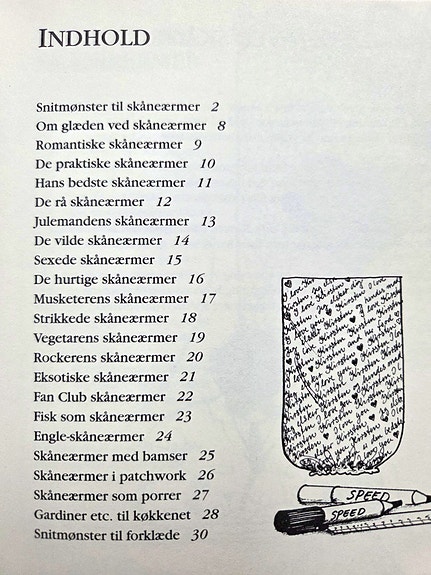 INDHOLD
Snitmønster til skåneærmer 2
Om glæden ved skåneærmer 8
Romantiske skåneærmer 9
De praktiske skåneærmer 10
Hans bedste skåneærmer 11
De rå skåneærmer 12
Julemandens skåneærmer 13
De vilde skåneærmer 14
Sexede skåneærmer 15
De hurtige skåneærmer 16
Musketerens skåneærmer 17
Strikkede skåneærmer 18
Vegetarens skåneærmer 19
Rockerens skåneærmer 20
Eksotiske skåneærmer 21
Fan Club skåneærmer 22
Fisk som skåneærmer 23
Engle-skåneærmer 24
Skåneærmer med bamser 25
Skåneærmer i patchwork 26
Skåneærmer som porrer 27
Gardiner etc. til køkkenet 28
Snitmønster til forklæde 30
SPEED
SPEED